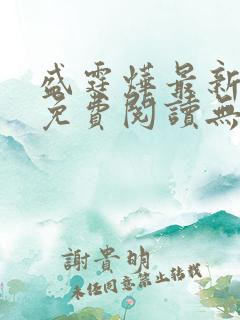 盛霆燁最新
免費閱讀無
謝貴明
未經同意禁止轉載